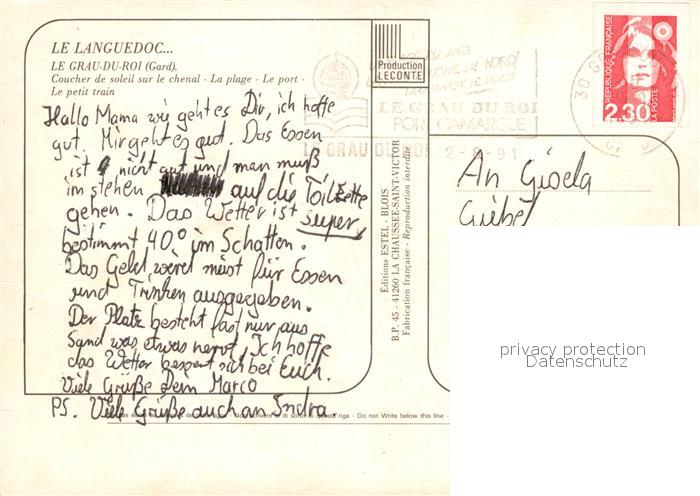 LE LANGUEDOC...
LE GRAU-DU-ROI (Gard).
Coucher de soleil sur le chenal - La plage - Le port -
Le petit train
Production
LECONTE
Hallo Mama wie geht es Dir, ich hoffe
gut. Mir geht es gut. Das Essen
ist nicht gut und man muß
im stehen auf die Toilette
gehen. Das Wetter ist super,
bestimmt 40° im Schatten.
Das Geld wird meist für Essen
und Trinken ausgegeben.
Der Platz besteht fast nur aus
Sand was etwas nervt, Ich hoffe
das Wetter bessert sich bei Euch.
Viele Grüße Dein Marco
PS. Viele Grüße auch an Indra.
Do not Write below this line -
Éditions ESTEL - BLOIS
B.P. 45 - 41260 LA CHAUSSEE-SAINT-VICTOR
Fabrication française - Reproduction interdite
LE GRAU DU ROI
PORT CAMARGUE
LE GRAU DU ROI 2-8-91
REPUBLIQUE FRANÇAISE
2,30
LA POSTE
An Gisela
Giebel
privacy protection
Datenschutz